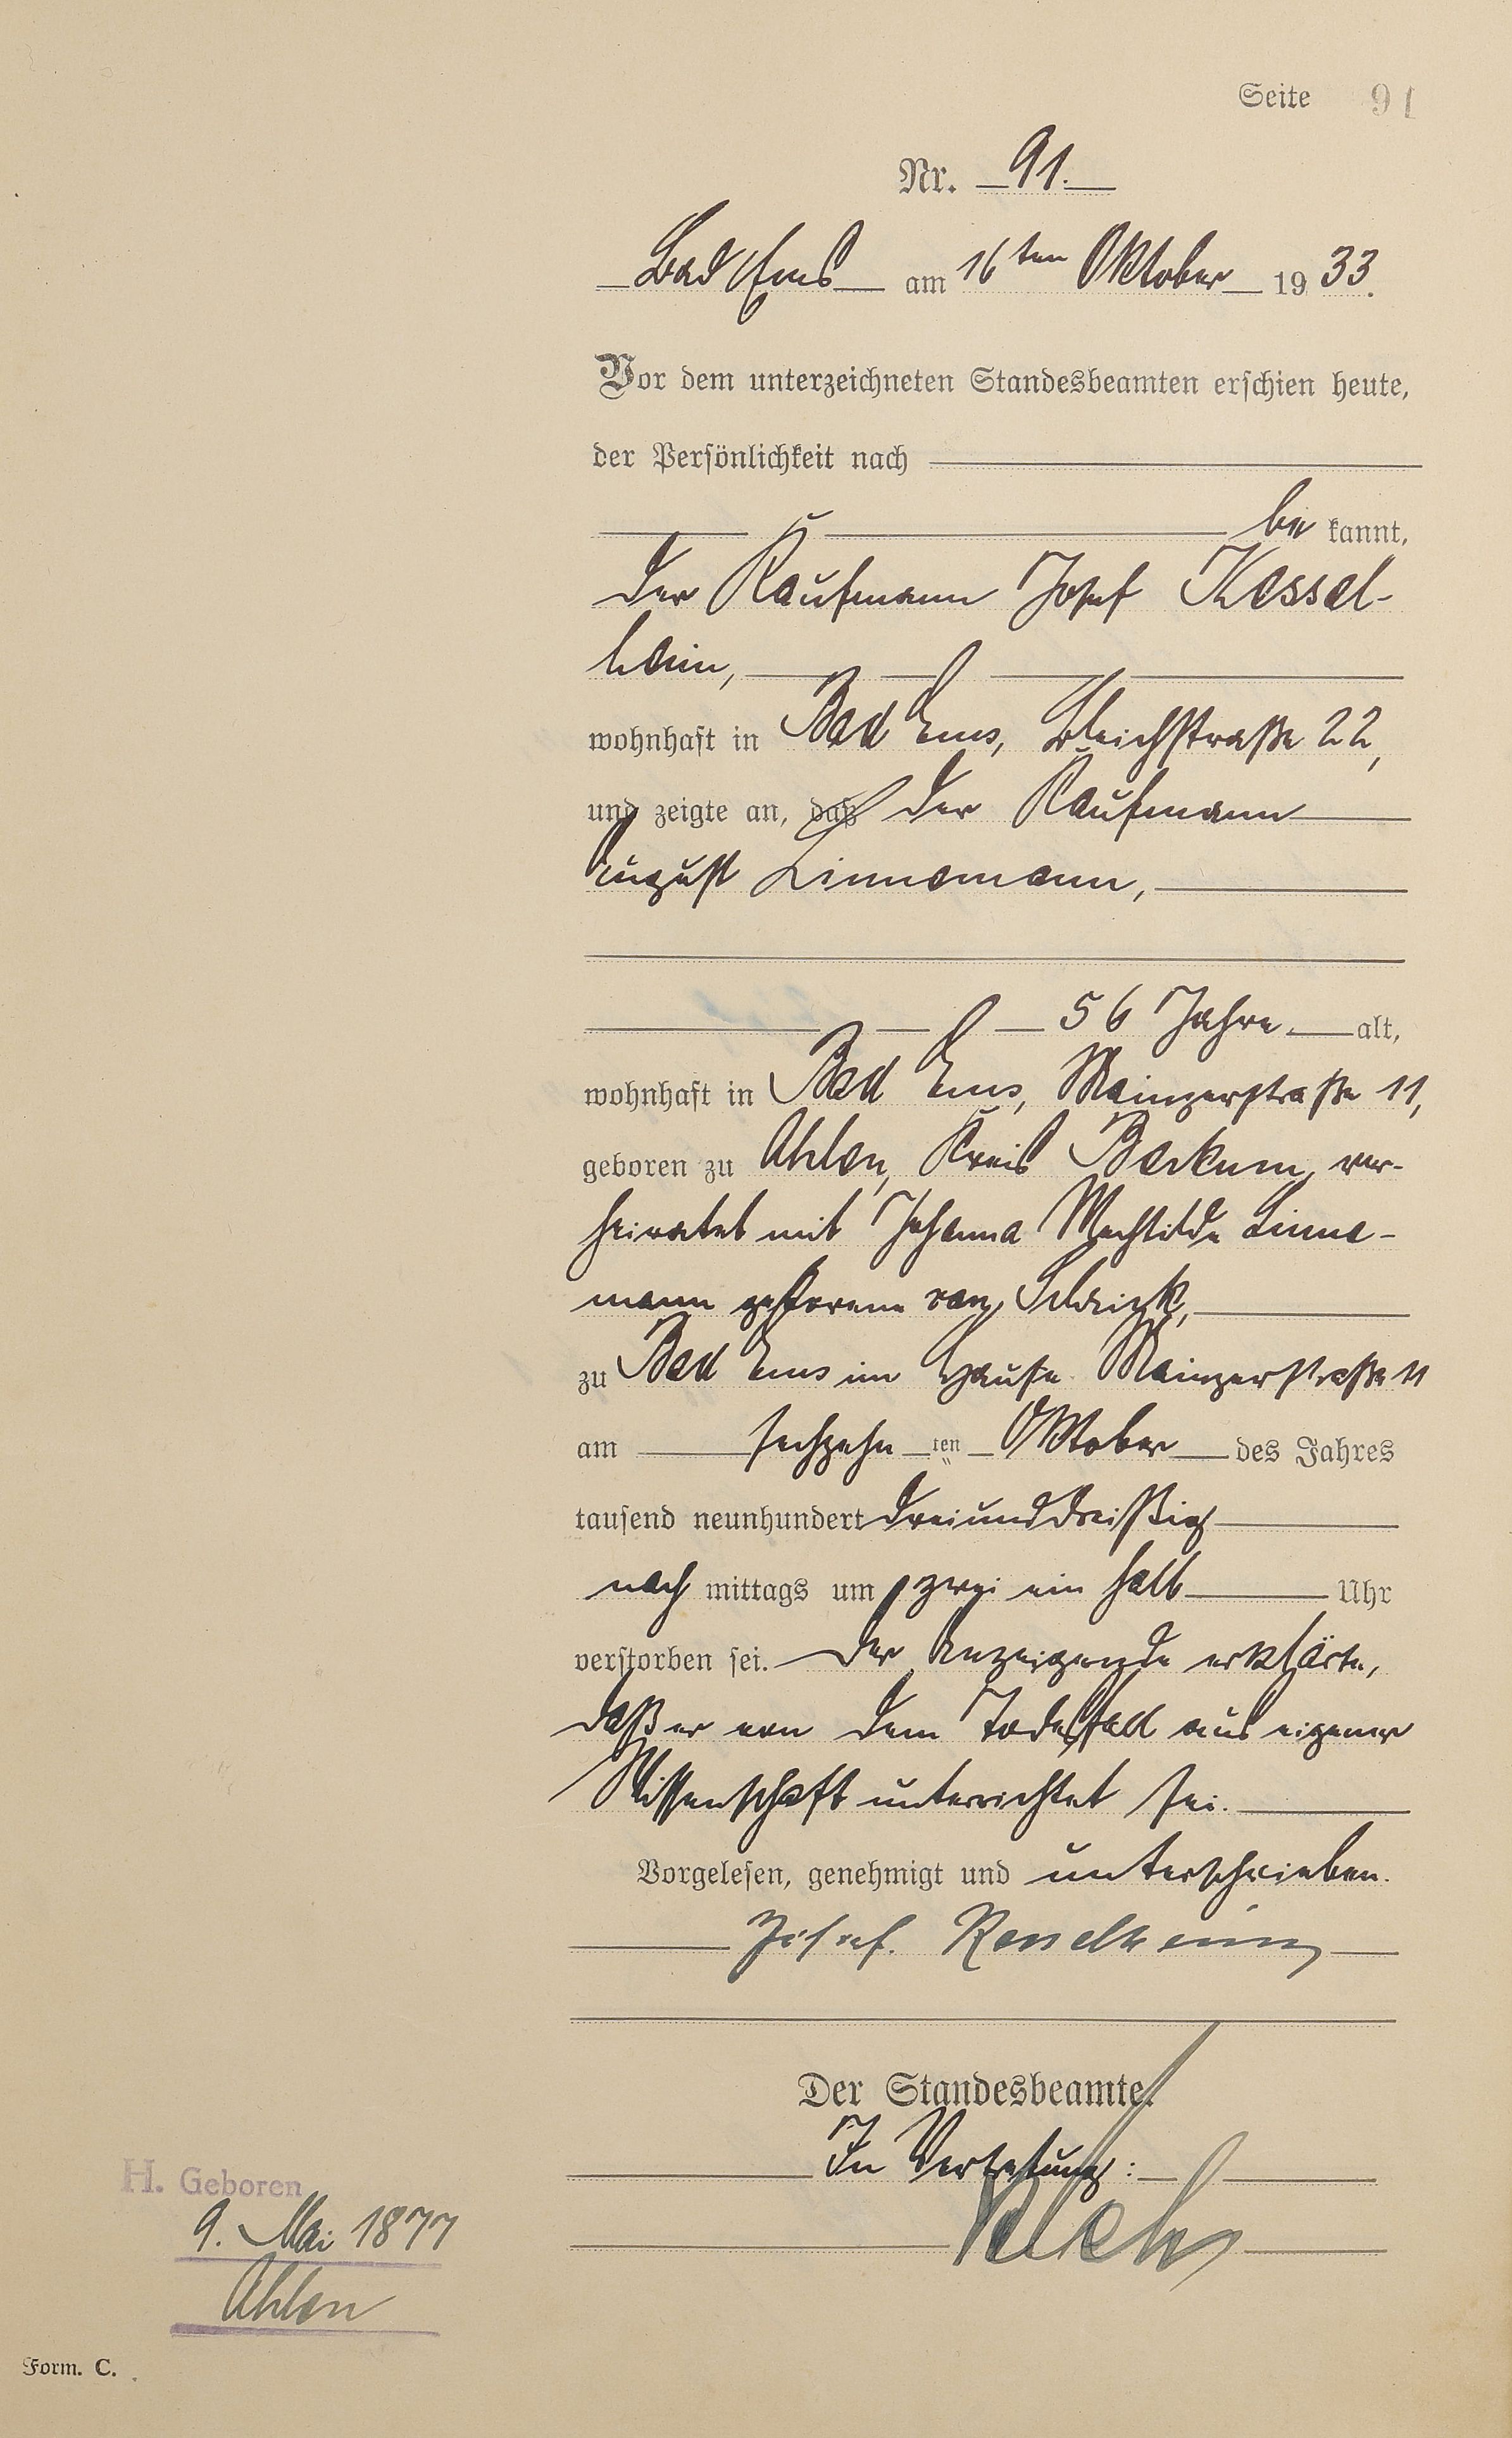 Seite 91
Nr. 91.
Bad Ems am 16ten Oktober 1933.
Vor dem unterzeichneten Standesbeamten erschien heute,
der Persönlichkeit nach
be kannt,
der Kaufmann Josef Kessel-
heim,
wohnhaft in Bad Ems, Bleichstraße 22,
und zeigte an, daß der Kaufmann
August Linnemann,
56 Jahre alt,
wohnhaft in Bad Ems, Mainzerstraße 11,
geboren zu Ahlen, Kreis Beckum, ver-
heiratet mit Johanna Mechtilde Linne-
mann geborene van
zu Bad Ems im Hause Mainzerstraße 11
am sechzehn ten Oktober des Jahres
tausend neunhundert dreiunddreißig
nach mittags um zwei ein halb Uhr
verstorben sei. Der Anzeigende erklärte,
daß er von dem Todesfall aus eigener
Wissenschaft unterrichtet sei.
Vorgelesen, genehmigt und unterschrieben.
Josef Kesselheim
Der Standesbeamte.
In Vertretung:
H. Geboren
9. Mai 1877
Ahlen
Form. C.